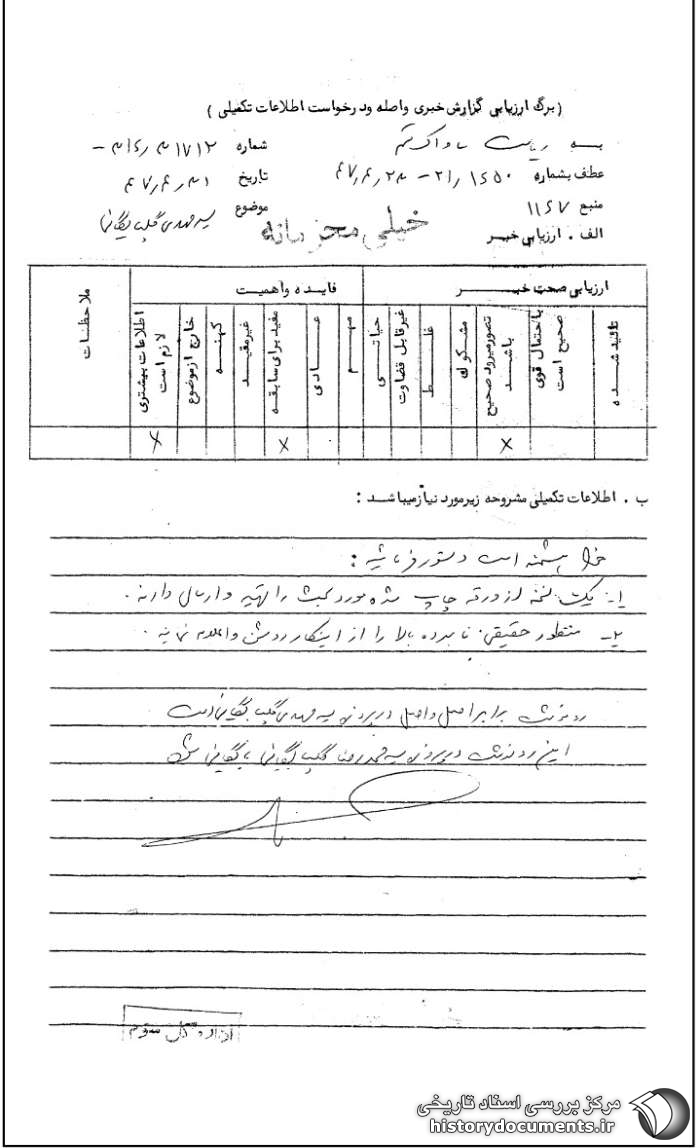 (برگ ارزیابی گزارش خبری واصله ودرخواست اطلاعات تکمیلی)
بـــه ریاست ساواک قم
شماره ۳۱۷۱۲
عطف بشماره ۲۱/۱۶۵۰ - ۴۷٫۶٫۲۳
تاریخ ۴۷٫۶٫۳۱
منبع ۱۱۶۷
موضوع سید مهدی گلپایگانی
الف . ارزیابی خبـــر
خیلی محرمانه
ارزیابی صحت خبـــــر
فایـده واهمیت
تائید شـده
باحتمال قوی صحیح است
تصورمیرود صحیح باشـد
مشـکوک
غلـط
غیرقابل قضاوت
حیاتـی
مهـم
عـادی
مفید برای سابقـه
غیرمفید
کهنـه
خارج ازموضوع
اطلاعات بیشتری لازم است
ملاحظـات
x x x
ب . اطلاعات تکمیلی مشروحه زیرمورد نیازمیباشد :
خواهشمند است دستور فرمائید :
۱- یک نسخه از ورقه چاپ شده مورد بحث را تهیه و ارسال دارند .
۲- منظور حقیقی نامبرده بالا را از اینکار روشن و اعلام نمایند .
رونوشت برابر اصل و اصل در پرونده سید مهدی گلپایگانی است
این رونوشت در پرونده سید محمدرضا گلپایگانی بایگانی شود
اداره کل سوم
مرکز بررسی اسناد تاریخی
historydocuments.ir